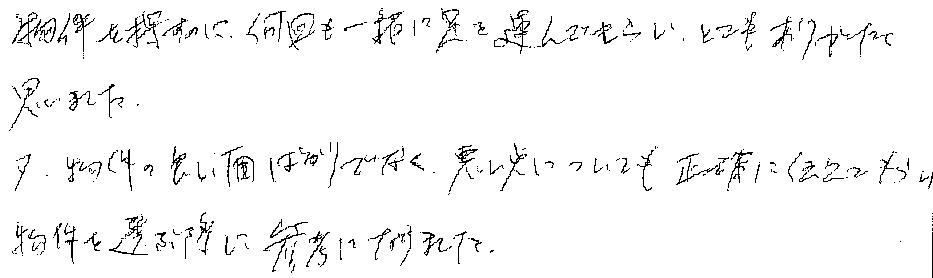 物件を探すのに、何回も一緒に足を運んでもらい、とてもありがたく
思いました。
又、物件の良い面ばかりでなく、悪い点についても正確に伝えてもらい
物件を選ぶ際に参考になりました。